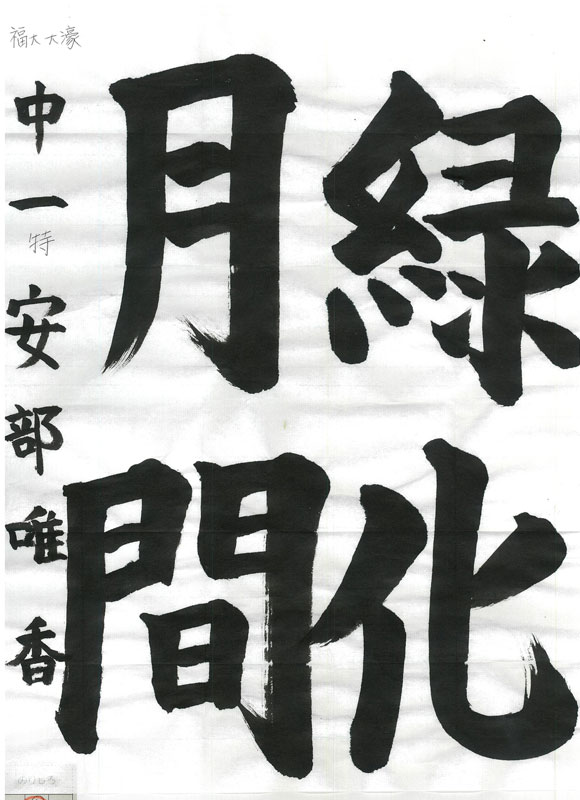 緑化
月間
福大大濠
中一特 安部唯香